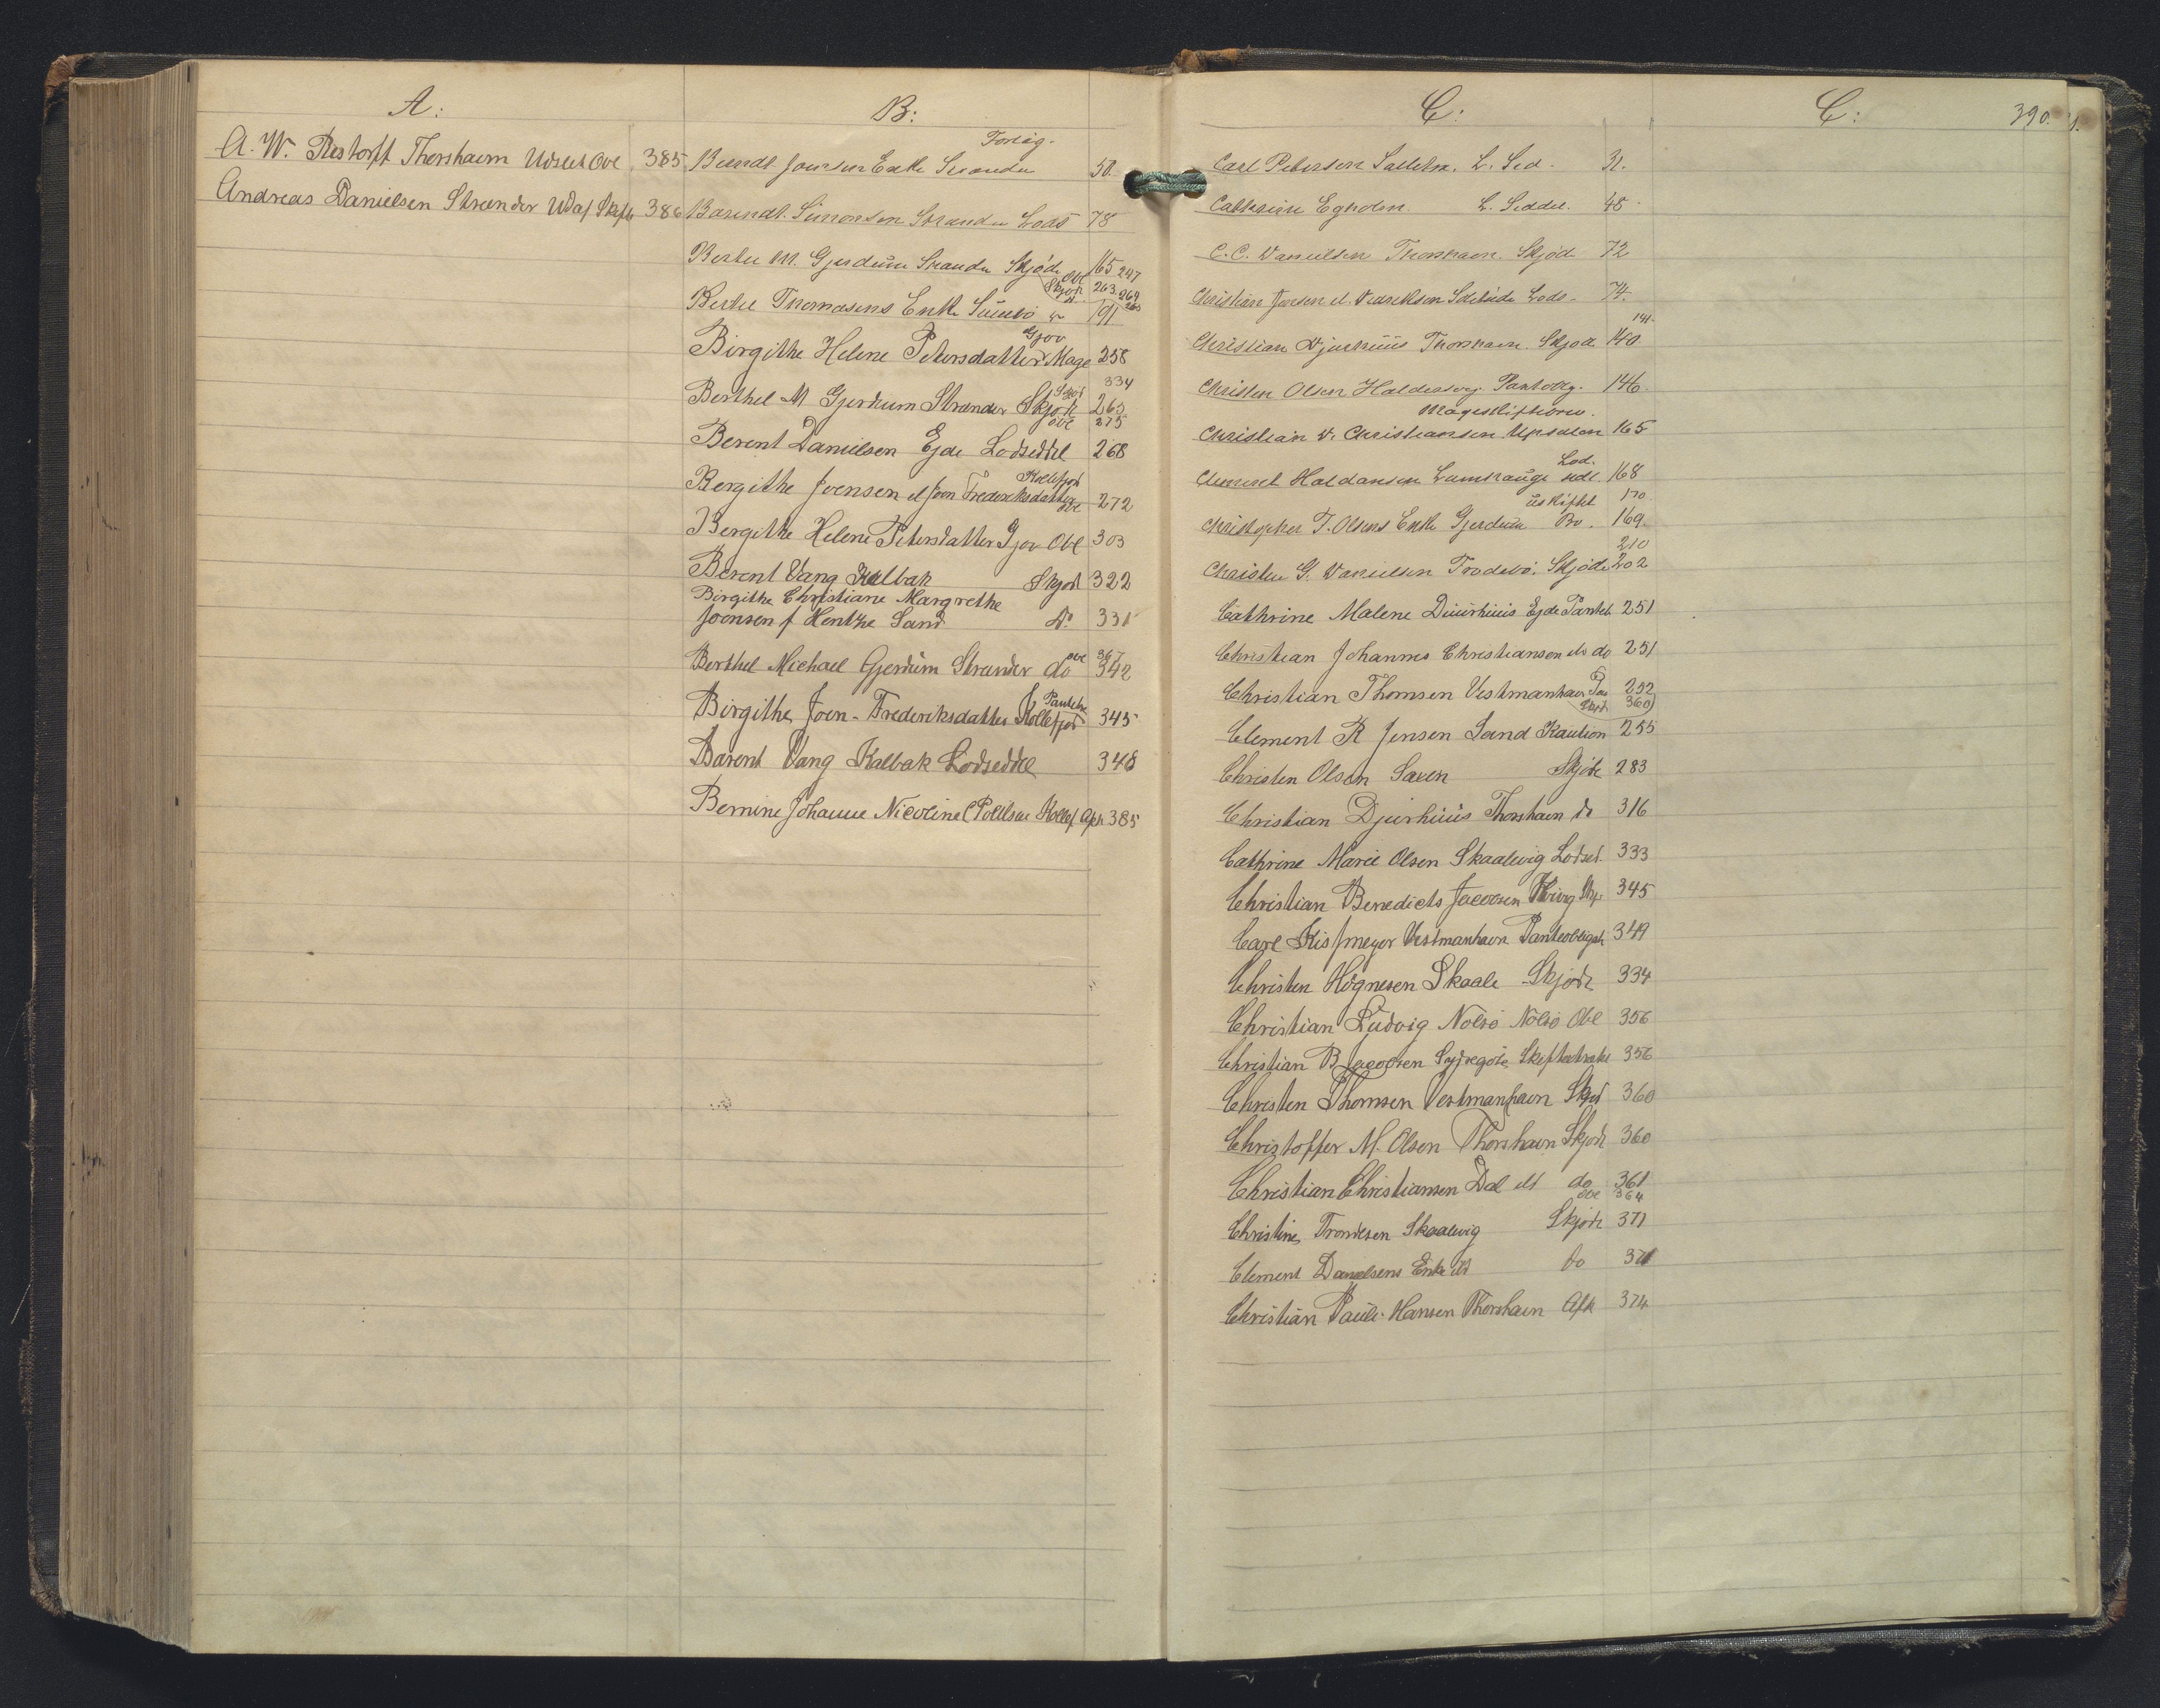 A:
A. W. Restorff Thorshavn Udslet Obl 385
Andreas Danielsen Strænder Udaf Skifte 386
B:
Forlig.
Berndt Joensen Enke Strænder 50.
Barendt Simonsen Strænder Lods 78
Berthel M. Gjerdum Strænder Skjöde 165 247
Obl Skjöde 263. 269
Berthe Thomasens Enke Sumbö 191
Gjov
Birgithe Helene Petersdatter Mage 258
334
Berthel M Gjerdum Strænder Skjöde 265
Obl 275
Berent Danielsen Ejde Lodseddel 268
Kollefjord
Bergithe Joensen el Joen Frederiksdatter Obl 272
Bergithe Helene Petersdatter Gjov Obl 303
Berent Vang Kalbak Skjöd 322
Birgithe Christiane Margrethe
Joensen f Hentze Sand do 331
Obl 367
Berthel Michael Gjerdum Strænder do 342
Panteb
Birgithe Joen-Frederiksdatter Kollefjord 345
Barent Vang Kalbak Lodseddel 348
Bernine Johanne Nicoline Poulsen Kollef Afk 385
C:
Carl Petersen L. Sed. 31.
Cathrine Egholm L. Seddel. 48
C.C. Danielsen Thorshavn. Skjöd 72
Christian Joensen el. Lods. 74.
141.
Christian Djurhuus Thorshavn. Skjöd 140
Christen Olsen Haldersvig. Pantoblg. 146.
Mageskifte
Christian D. Christiansen 165
Lod.
Clement Haldansen sedl. 168
Udskiftet 170.
Christopher T. Olsens Enke Gjerdum Bo. 169.
210
Christen G. Danielsen Skjöde 202
Cathrine Malene Djurhuus Ejde Panteb. 251
Christian Johannes Christiansen ds do 251
Christian Thomsen Vestmanhavn Pan 252
Skjöd 360
Clement R Jensen Sand Kaution 255
Christen Olsen Saxen Skjöde 283
Christian Djurhuus Thorshavn do 316
Cathrine Marie Olsen Skaalevig Lodsed. 333
Christian Benedicts Jacobsen 345
Carl Kismeyer Vestmanhavn Panteobligat. 349
Christen Högnesen Skaale Skjöde 334
Christian Ludvig Nolsö Nolsö Obl 356
Christian B Jacobsen Sydregöte Skifteextrakt 356
Christen Thomsen Vestmanhavn Skjöd 360
Christoffer M. Olsen Thorshavn Skjöde 360
Christian Christiansen Dal ds do 361
Obl 364
Christine Trondesen Skaalevig Skjöde 371
Clement Danielsens Enke ds do 371
Christian Pauli Hansen Thorshavn Afk 374
C:
390.